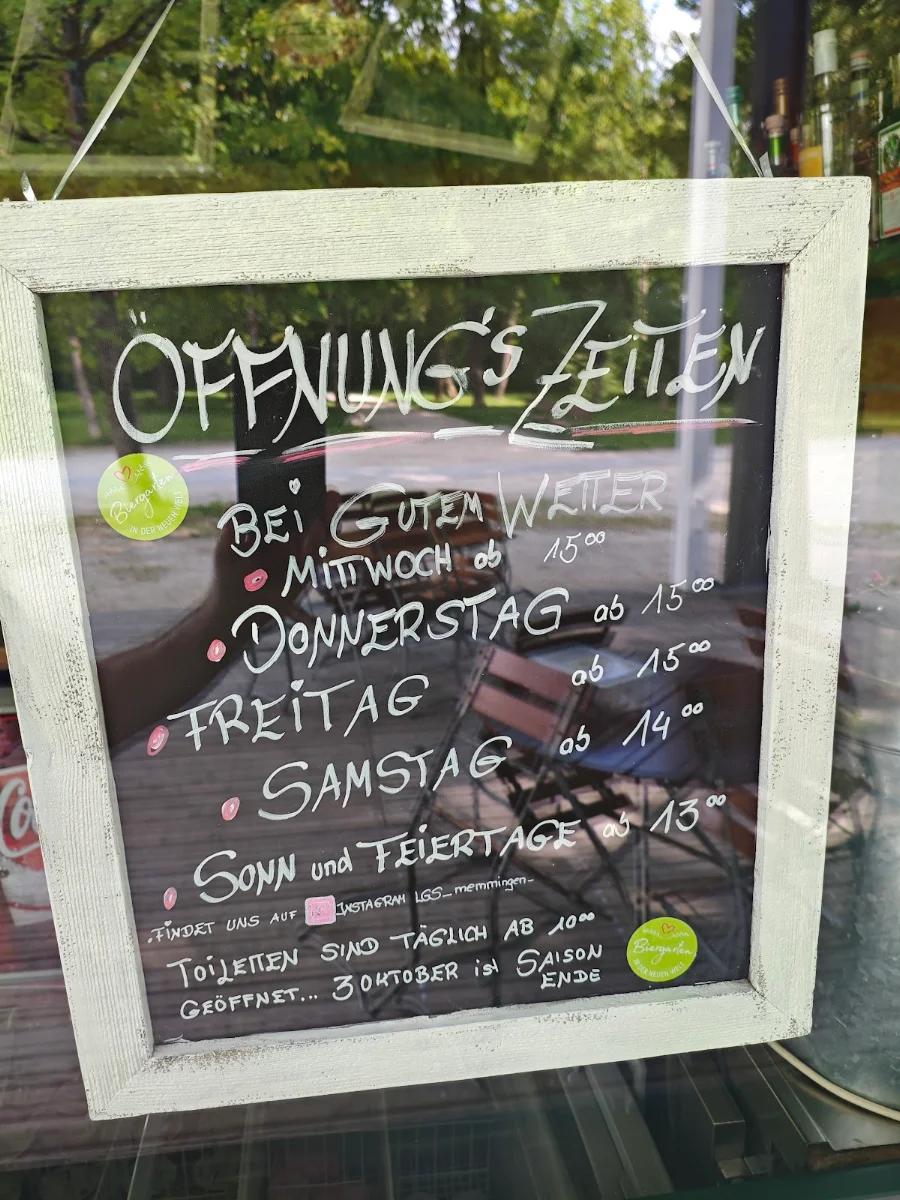 ÖFFNUNG'S ZEITEN
Biergarten
IN DER NEUEN WELT
BEi GUTEM WETTER
MiTTWOCH ab 15⁰⁰
DONNERSTAG ab 15⁰⁰
FREiTAG ab 15⁰⁰
SAMSTAG ab 14⁰⁰
SONN und FEiERTAGE ab 13⁰⁰
.FiNDET UNS AUF INSTAGRAM LGS_memmingen_
TOiLETTEN SIND TÄGLICH AB 10⁰⁰
GEÖFFNET... 3 OKTOBER ist SAISON
ENDE
Biergarten
IN DER NEUEN WELT